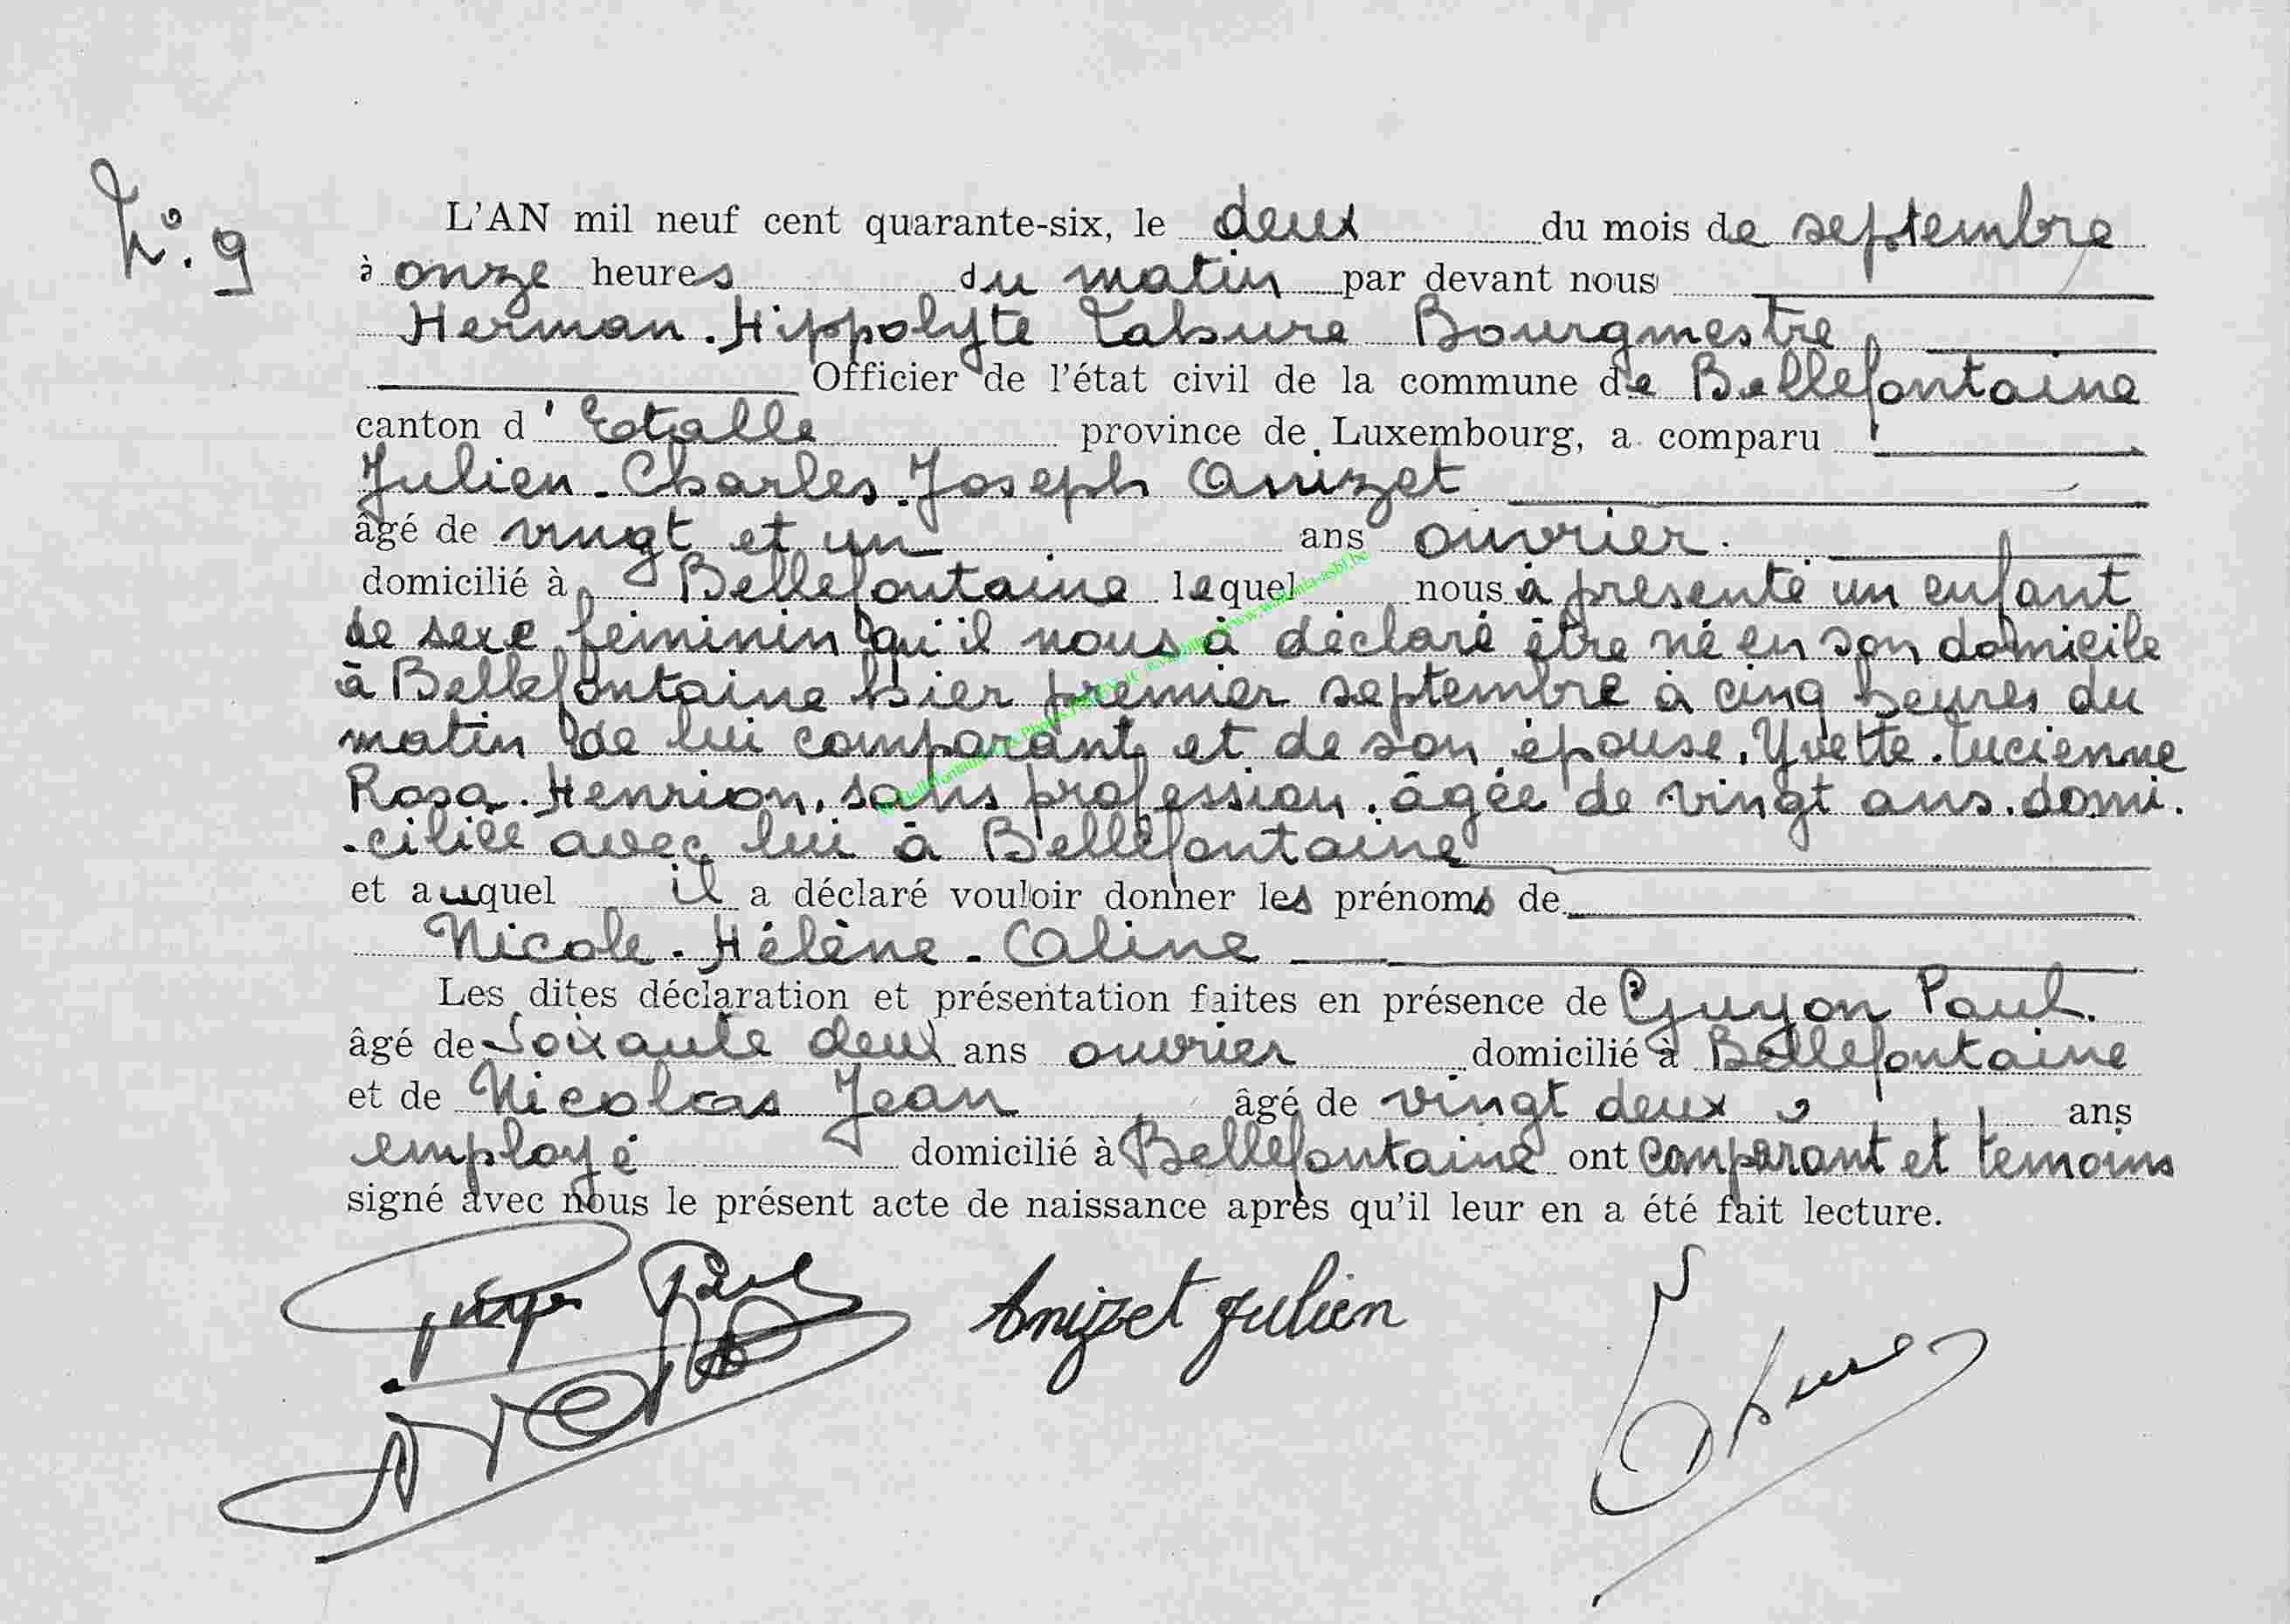 N°. 9
L'AN mil neuf cent quarante-six, le deux du mois de septembre
à onze heures du matin par devant nous
Herman-Hippolyte Lahure Bourgmestre
Officier de l'état civil de la commune de Bellefontaine
canton d'Etalle province de Luxembourg, a comparu
Julien-Charles-Joseph Anizet
âgé de vingt et un ans ouvrier.
domicilié à Bellefontaine lequel nous à présenté un enfant
de sexe féminin qu'il nous à déclaré être né en son domicile
à Bellefontaine hier premier septembre à cinq heures du
matin de lui comparant et de son épouse, Yvette-Lucienne
Rosa-Henrion, sans profession, âgée de vingt ans, domi-
-ciliée avec lui à Bellefontaine
et auquel il a déclaré vouloir donner les prénoms de
Nicole-Hélène-Aline
Les dites déclaration et présentation faites en présence de Guyon Paul.
âgé de soixante deux ans ouvrier domicilié à Bellefontaine
et de Nicolas Jean âgé de vingt deux ans
employé domicilié à Bellefontaine ont comparant et temoins
signé avec nous le présent acte de naissance après qu'il leur en a été fait lecture.
Anizet Julien